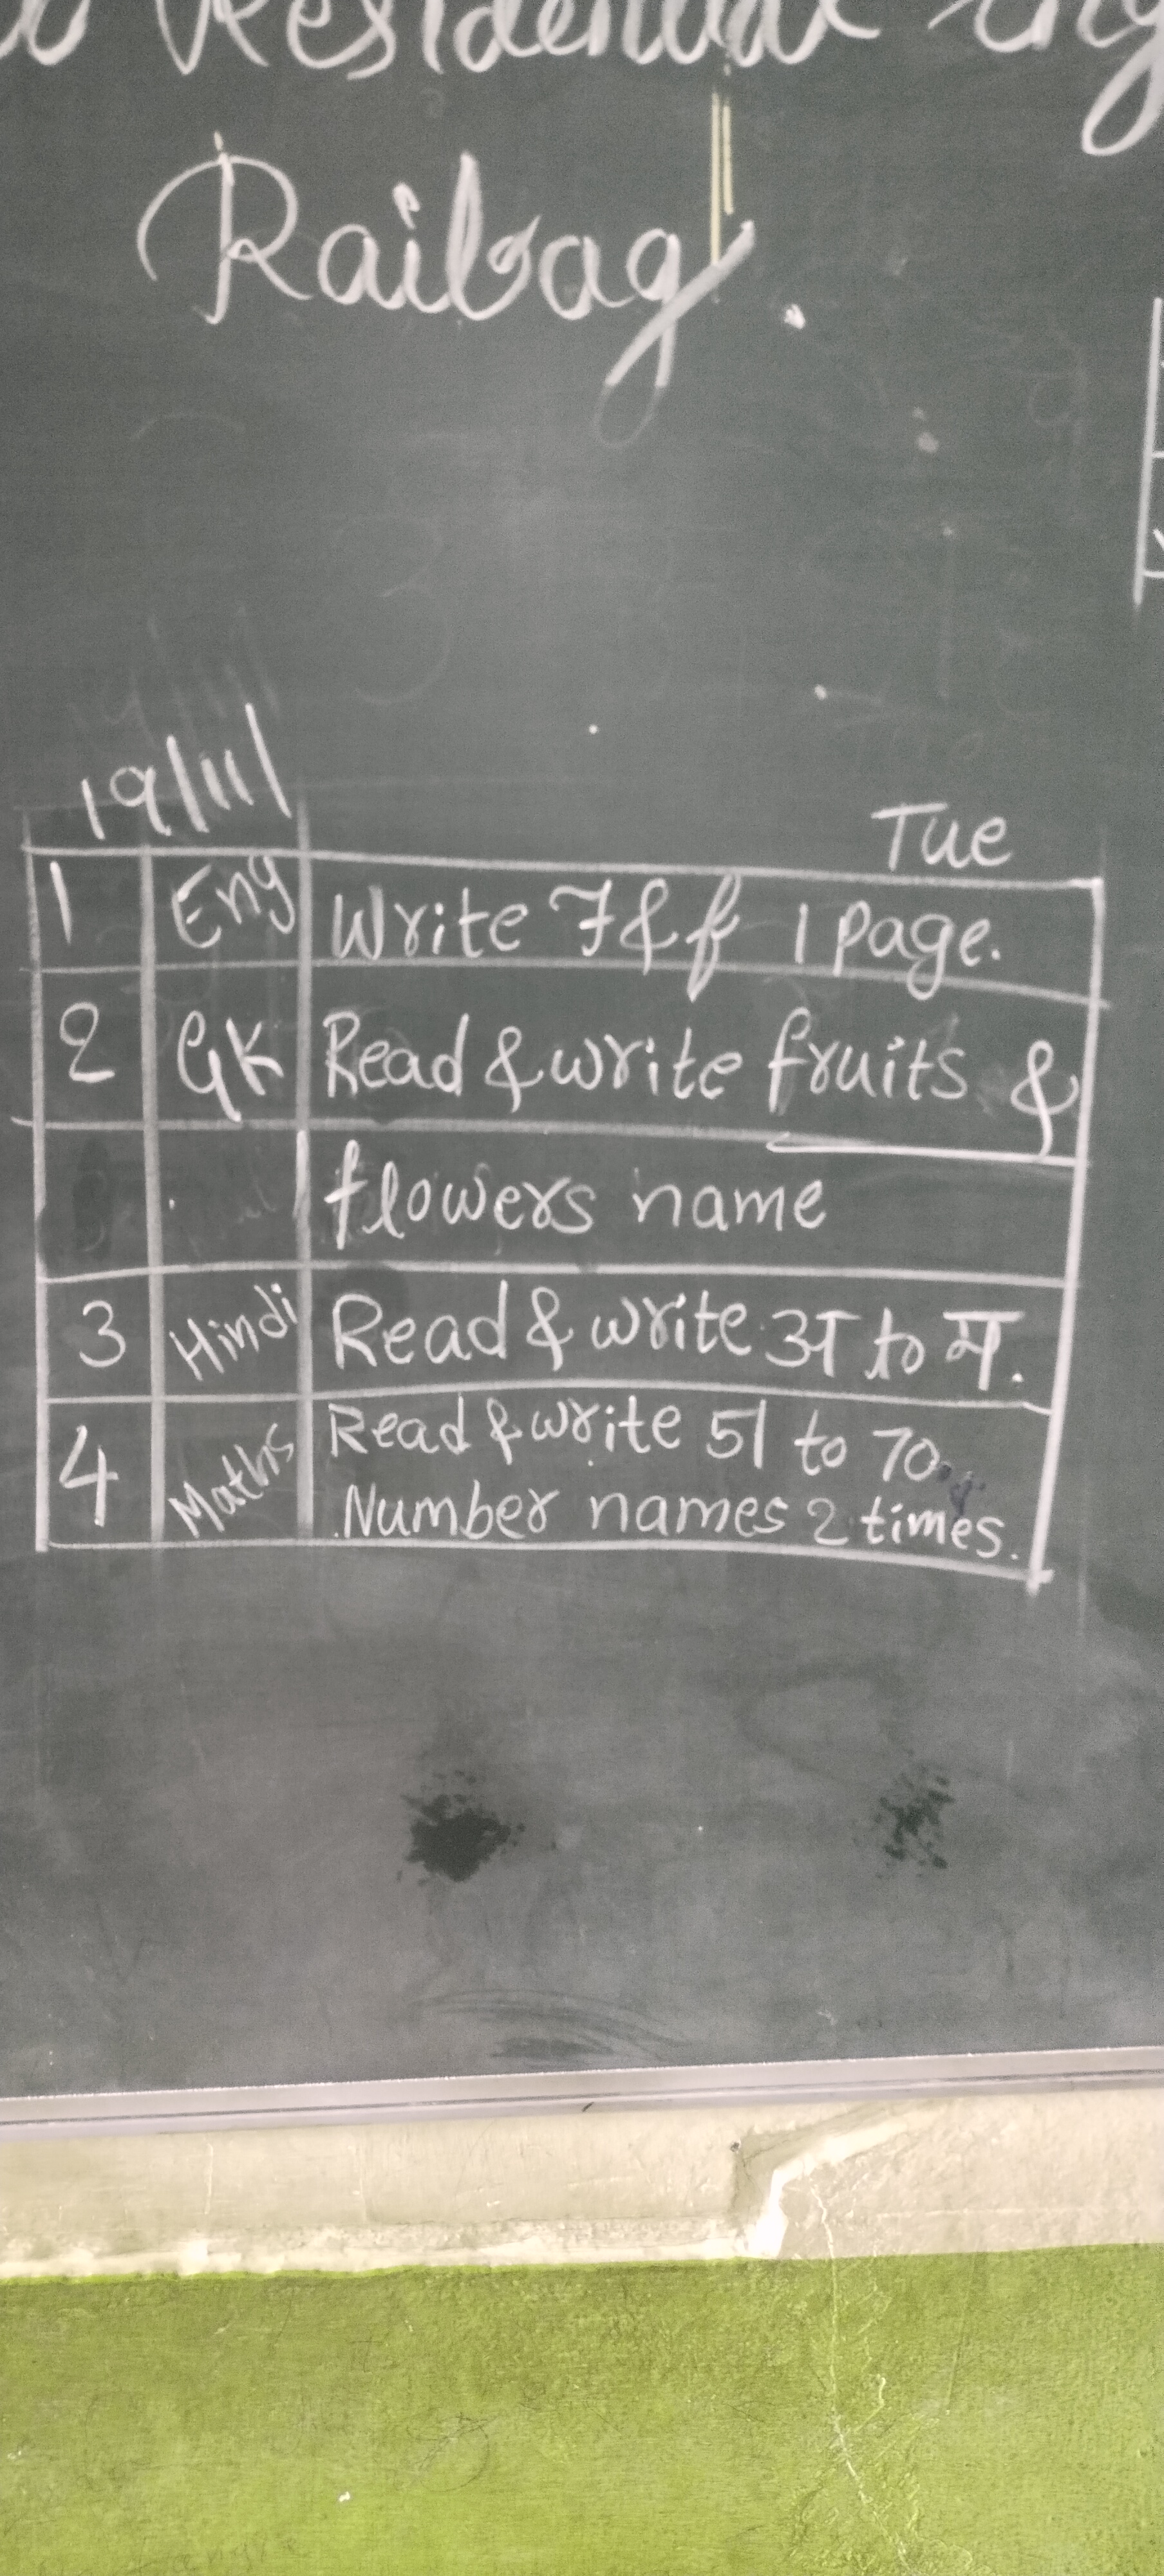 Residential
Raibag.
19/11/ Tue
1 Eng Write F & f 1 page.
2 GK Read & write fruits &
flowers name
3 Hindi Read & write अ to म.
4 Maths Read & write 51 to 70
Number names 2 times.